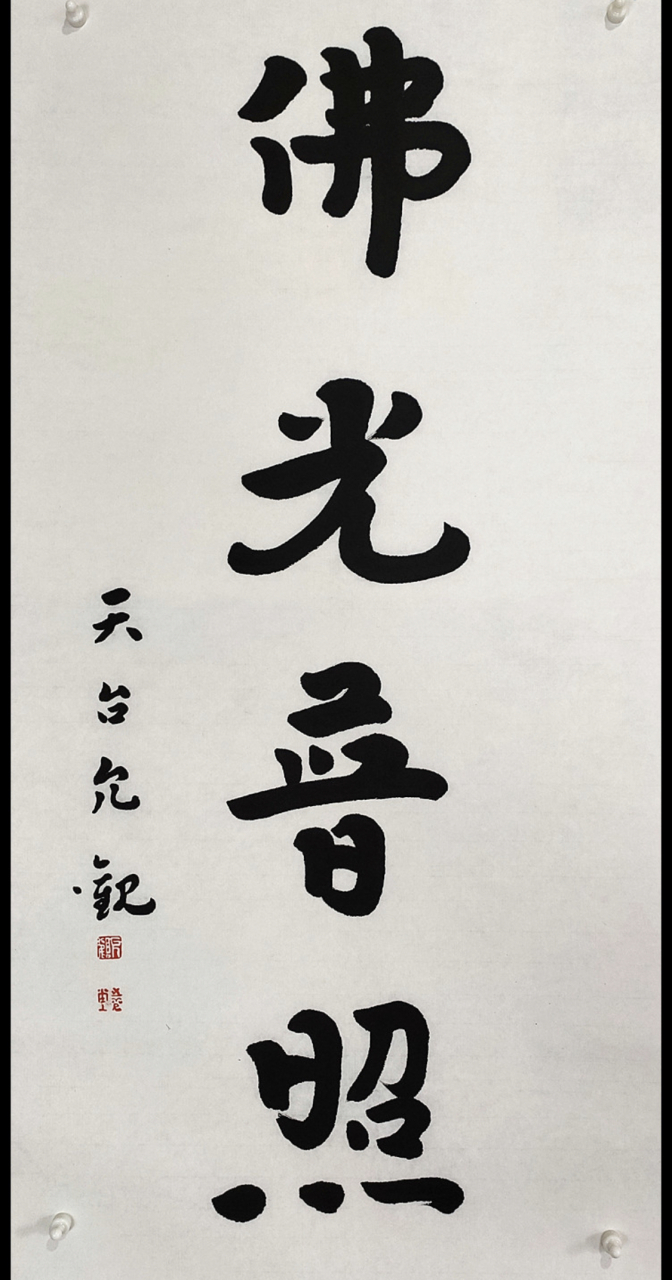 佛光普照
天台允觀